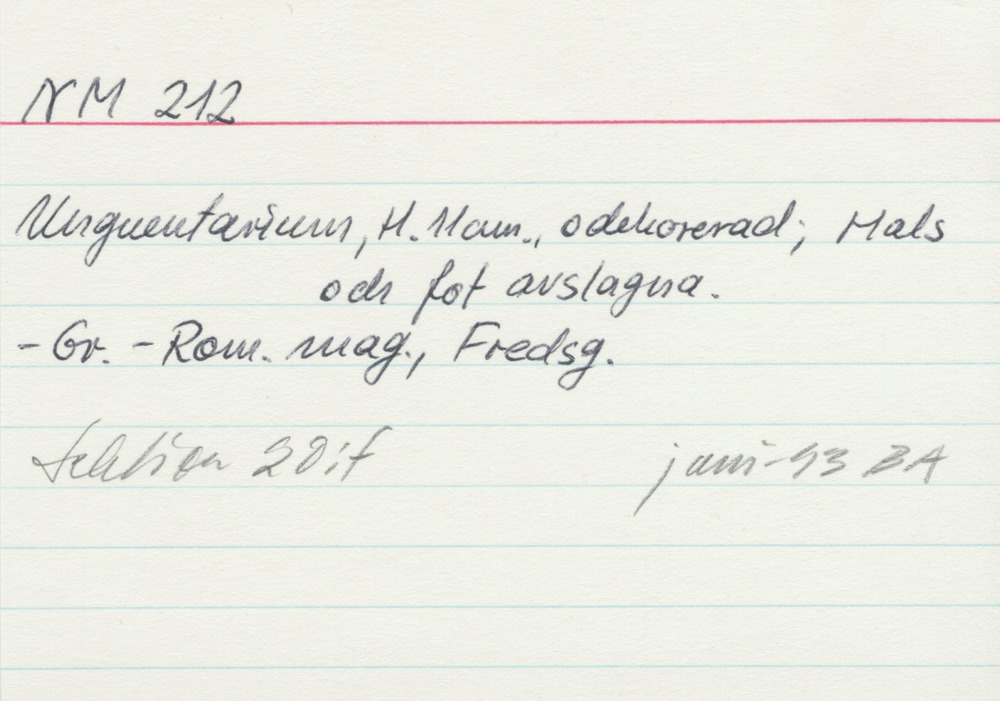 NM 212
Unguentarium, H. Ham., odekorerad; Hals
och fot avslagna.
- Gr. - Rom. mag., Fredsg.
Sektion 20:f
juni-93 BA